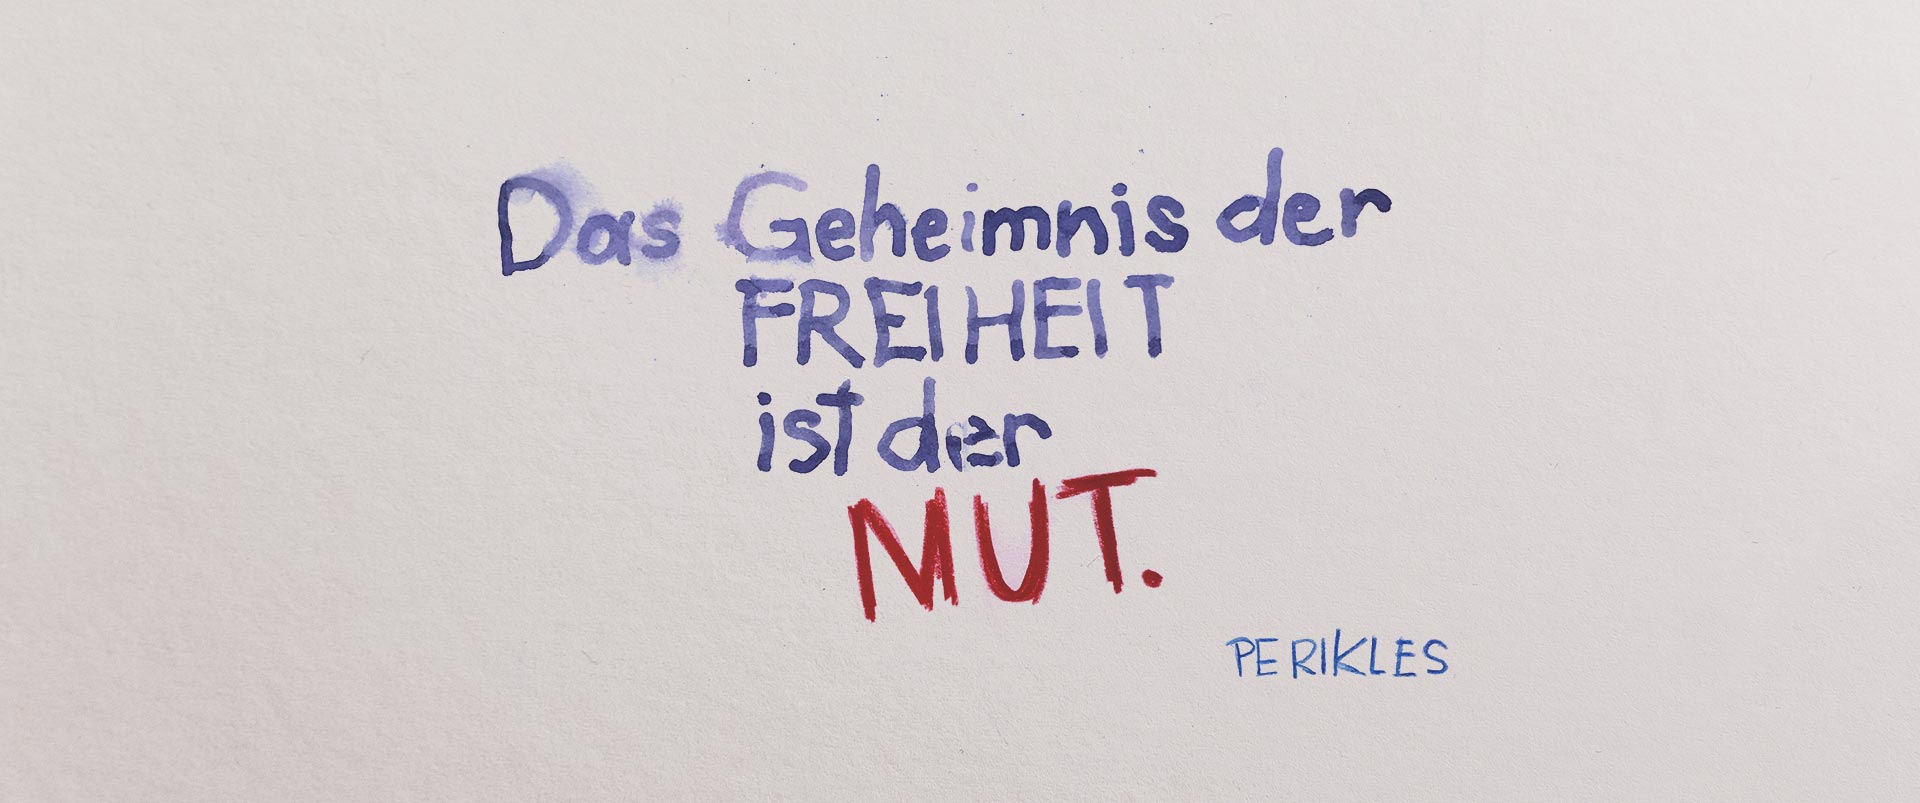 Das Geheimnis der
FREIHEIT
ist der
MUT.
PERIKLES